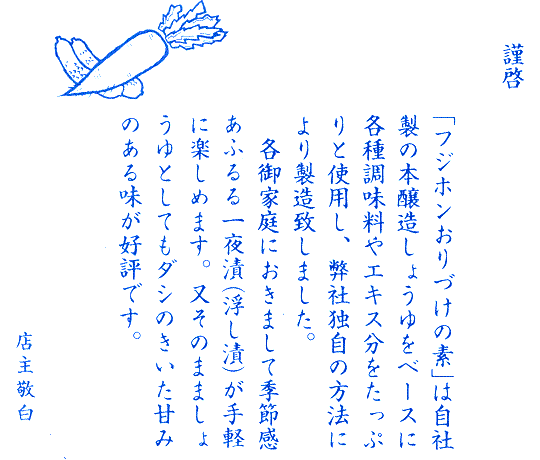 謹啓
「フジホンおりづけの素」は自社
製の本醸造しょうゆをベースに
各種調味料やエキス分をたっぷ
りと使用し、弊社独自の方法に
より製造致しました。
各御家庭におきまして季節感
あふるる一夜漬(浮し漬)が手軽
に楽しめます。又そのまましょ
うゆとしてもダシのきいた甘み
のある味が好評です。
店主敬白